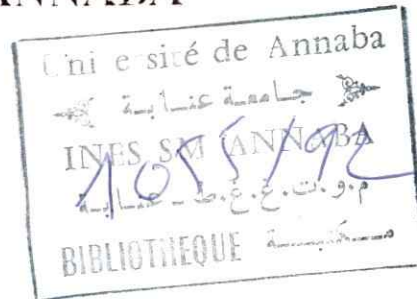 ANNABA
Uni e sité de Annaba
جامعة عنابة
INES SM ANNABA
1055/92
م.و.ت.ع.ع.ط - عنابة
BIBLIOTHEQUE مكتبة